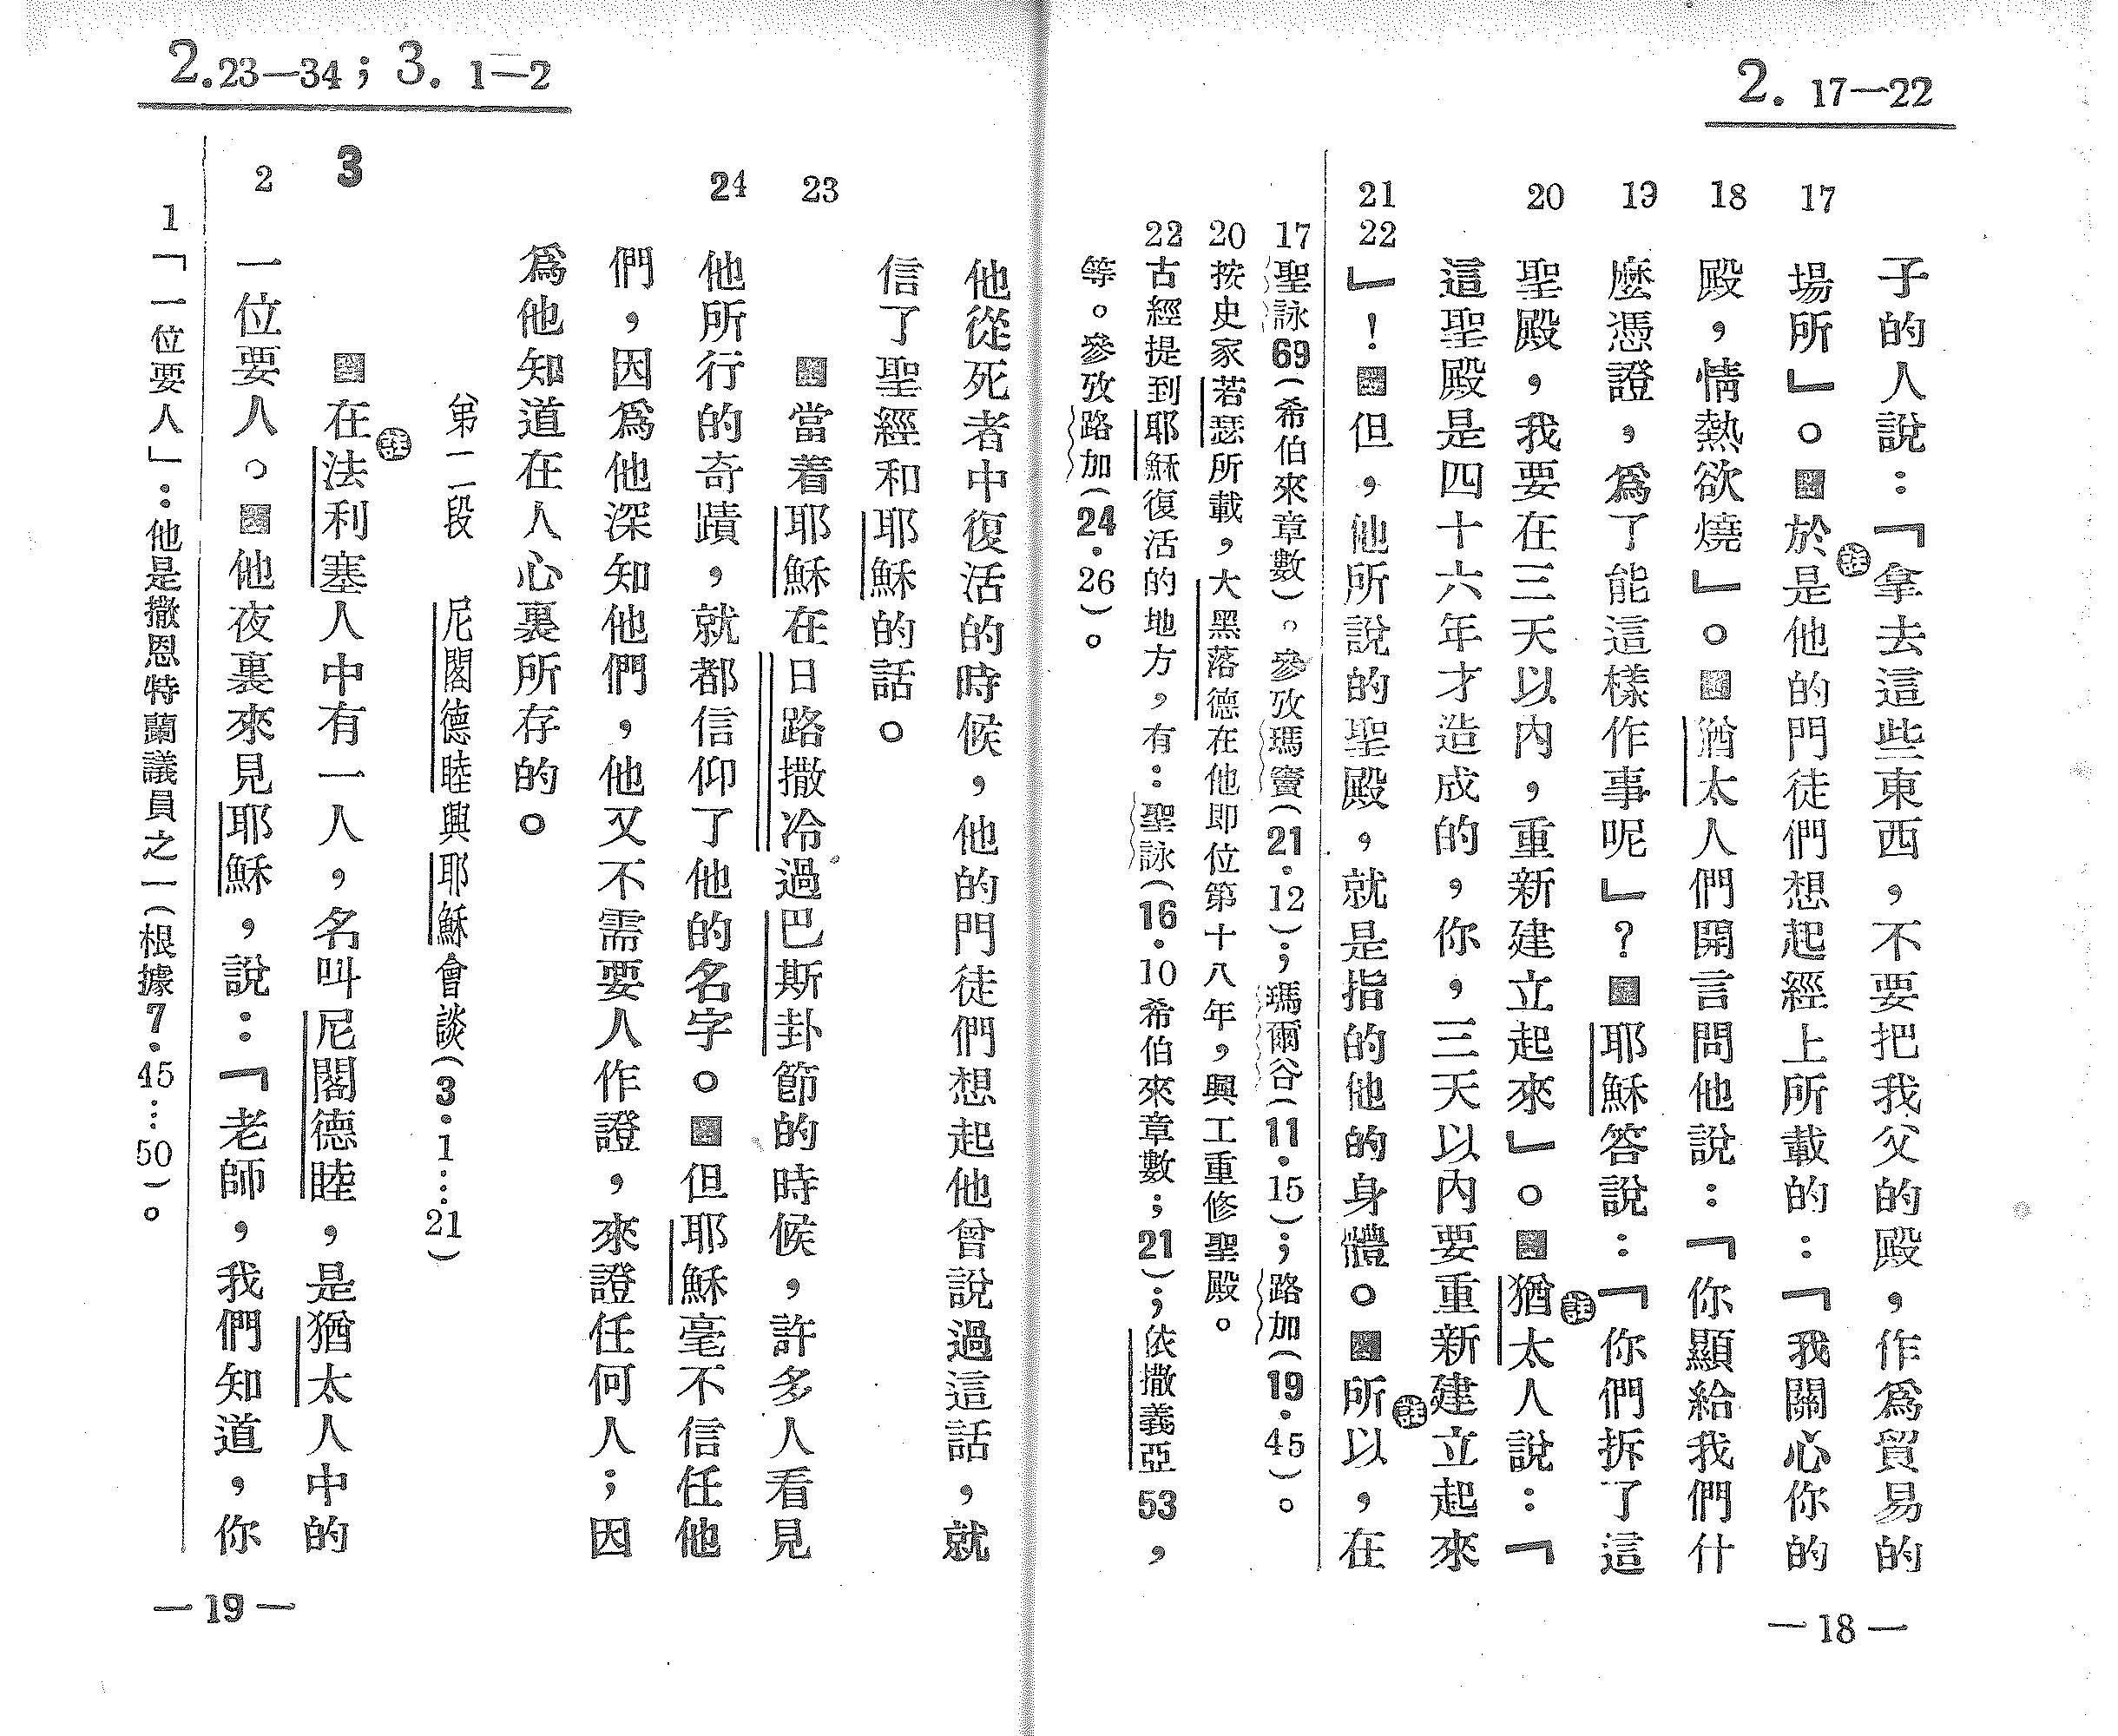 2. 17—22
子的人說：「拿去這些東西，不要把我父的殿，作爲貿易的
17 場所」。▩於㊟是他的門徒們想起經上所載的：「我關心你的
18 殿，情熱欲燒」。▩猶太人們開言問他說：「你顯給我們什
19 麼憑證，爲了能這樣作事呢」？▩耶穌答說：「你們拆了這
20 聖殿，我要在三天以內，重新建立起來」。▩猶㊟太人說：「
這聖殿是四十六年才造成的，你，三天以內要重新建立起來
21 22 」！▩但，他所說的聖殿，就是指的他的身體。▩所㊟以，在
17 聖詠69(希伯來章數)。參攷瑪竇(21·12)；瑪爾谷(11·15)；路加(19·45)。
20 按史家若瑟所載，大黑落德在他即位第十八年，興工重修聖殿。
22 古經提到耶穌復活的地方，有：聖詠(16·10希伯來章數；21)；依撒義亞53，
等。參攷路加(24·26)。
—18—
2.23—34；3. 1—2
他從死者中復活的時候，他的門徒們想起他曾說過這話，就
信了聖經和耶穌的話。
23 ▩當着耶穌在日路撒冷過巴斯卦節的時候，許多人看見
24 他所行的奇蹟，就都信仰了他的名字。▩但耶穌毫不信任他
們，因爲他深知他們，他又不需要人作證，來證任何人；因
爲他知道在人心裏所存的。
第二段 尼閣德睦與耶穌會談(3·1…21)
3 ▩在㊟法利塞人中有一人，名叫尼閣德睦，是猶太人中的
2 一位要人。▩他夜裏來見耶穌，說：「老師，我們知道，你
1 「一位要人」：他是撒恩特蘭議員之一(根據7·45…50)。
—19—